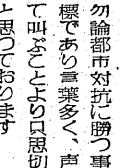 勿論都市対抗に勝つ事
標であり言葉多く、声
て叫ぶことより只思切
と思つております